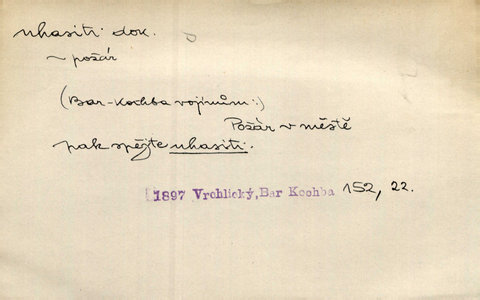 uhasiti dok.
~ požár
(Bar-Kochba vojínům:)
Požár v městě
pak spějte uhasiti.
1897 Vrchlický, Bar Kochba 152, 22.